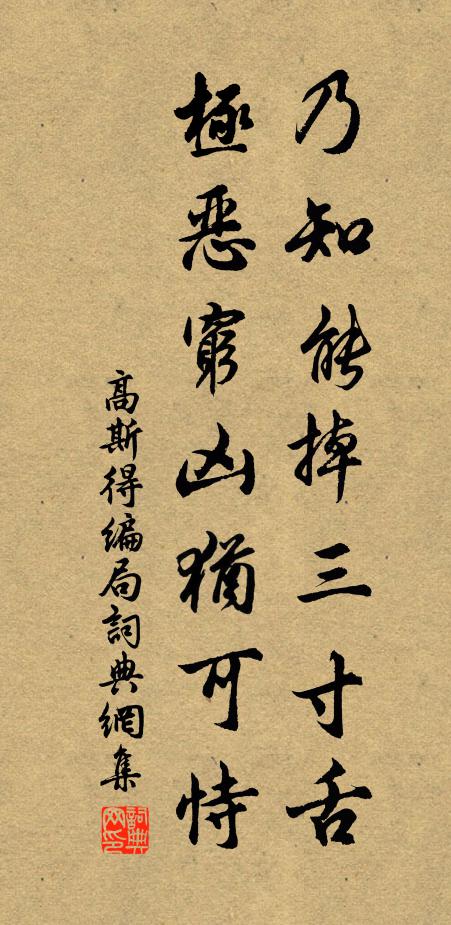 乃知能掉三寸舌
極惡窮凶猶可恃
高斯得編局詞典網集
詞典網印